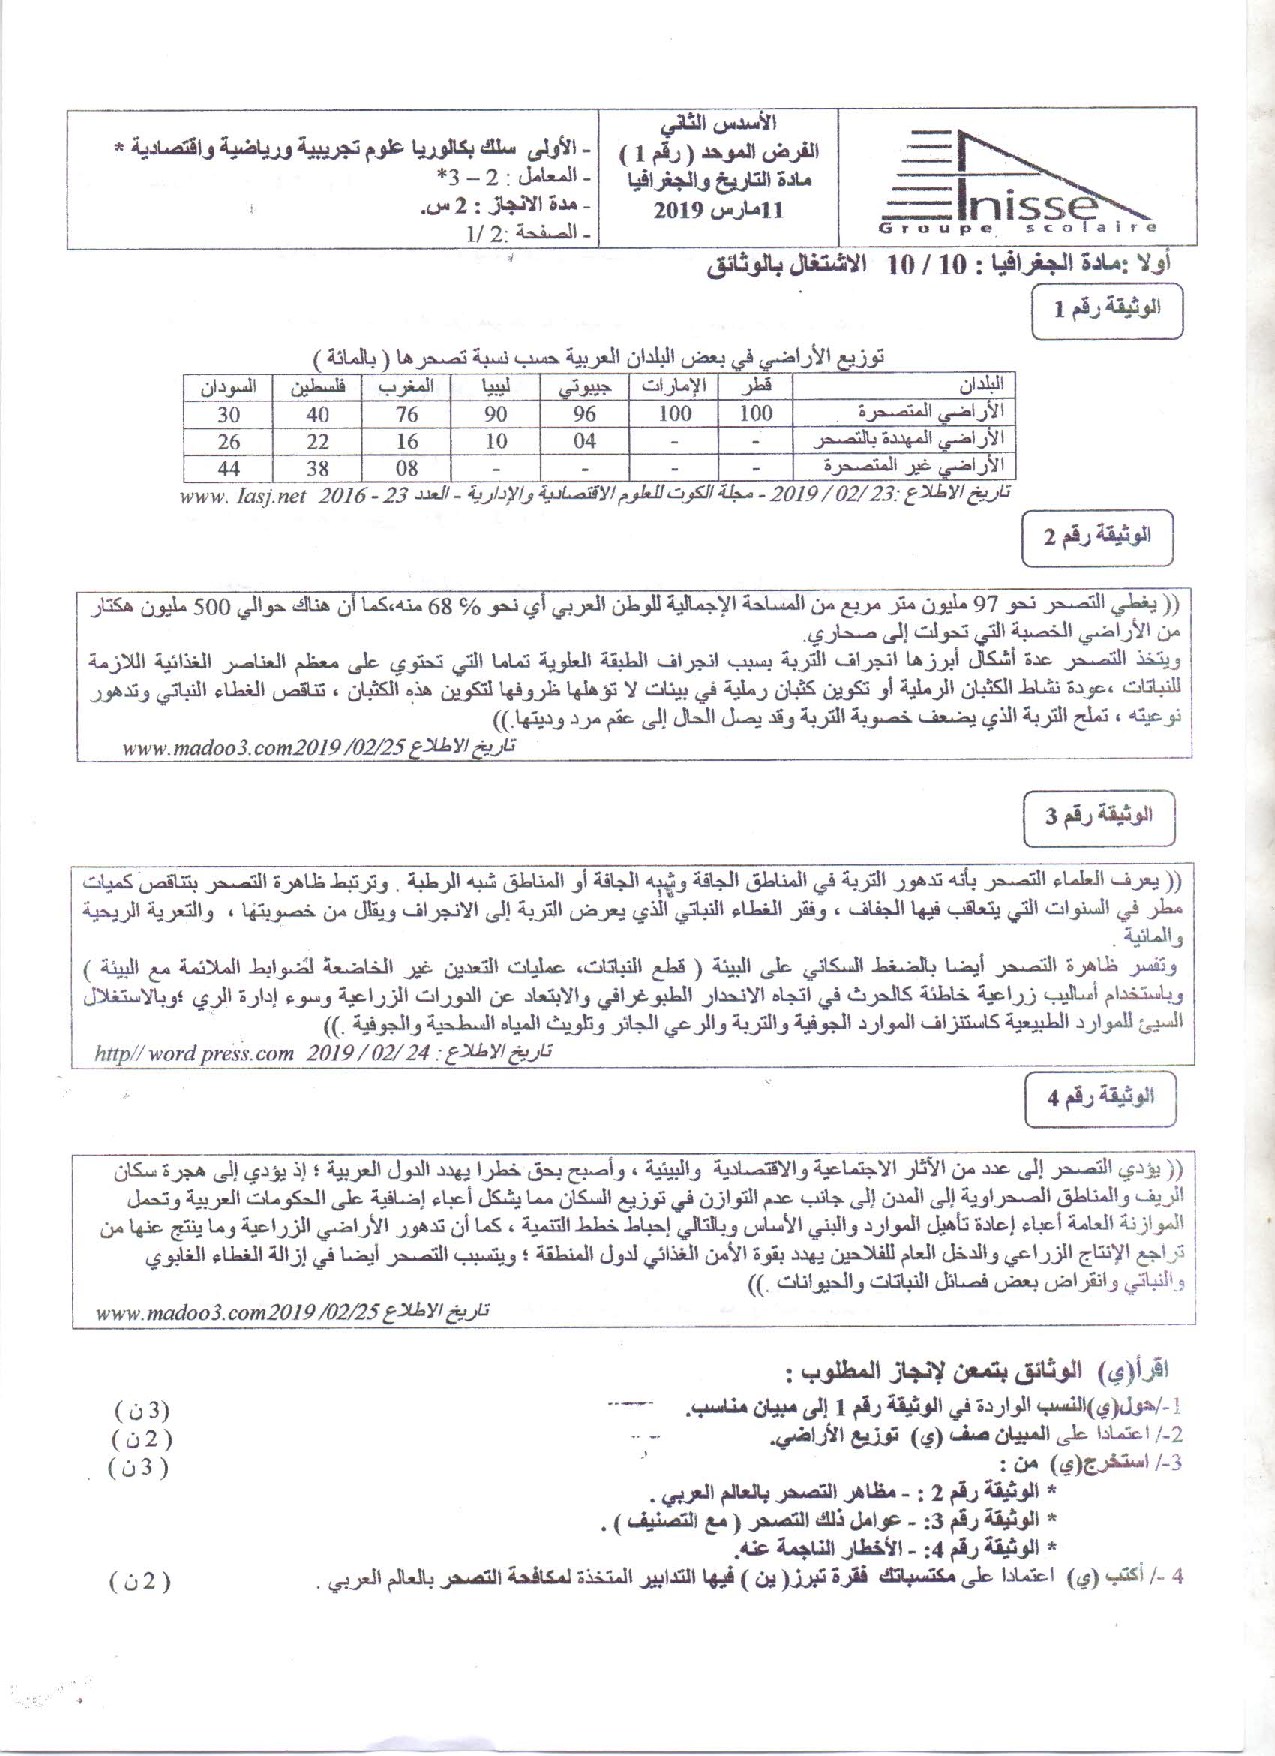 الأسدس الثاني
الفرض الموحد ( رقم 1 )
مادة التاريخ والجغرافيا
11مارس 2019
- الأولى سلك بكالوريا علوم تجريبية ورياضية واقتصادية *
- المعامل : 2 – 3*
- مدة الانجاز : 2 س.
- الصفحة : 2 /1
Inisse
Groupe scolaire
أولا :مادة الجغرافيا : 10 / 10 الاشتغال بالوثائق
الوثيقة رقم 1
توزيع الأراضي في بعض البلدان العربية حسب نسبة تصحرها ( بالمائة )
البلدان قطر الإمارات جيبوتي ليبيا المغرب فلسطين السودان
الأراضي المتصحرة 100 100 96 90 76 40 30
الأراضي المهددة بالتصحر - - 04 10 16 22 26
الأراضي غير المتصحرة - - - - 08 38 44
تاريخ الاطلاع :23 /02 / 2019 - مجلة الكوت للعلوم الاقتصادية والإدارية - العدد 23 - 2016 www. Iasj.net
الوثيقة رقم 2
(( يغطي التصحر نحو 97 مليون متر مربع من المساحة الإجمالية للوطن العربي أي نحو % 68 منه،كما أن هناك حوالي 500 مليون هكتار
من الأراضي الخصبة التي تحولت إلى صحاري.
ويتخذ التصحر عدة أشكال أبرزها انجراف التربة بسبب انجراف الطبقة العلوية تماما التي تحتوي على معظم العناصر الغذائية اللازمة
للنباتات ،عودة نشاط الكثبان الرملية أو تكوين كثبان رملية في بيئات لا تؤهلها ظروفها لتكوين هذه الكثبان ، تناقص الغطاء النباتي وتدهور
نوعيته ، تملح التربة الذي يضعف خصوبة التربة وقد يصل الحال إلى عقم مردوديتها.))
تاريخ الاطلاع www.madoo3.com2019 /02/25
الوثيقة رقم 3
(( يعرف العلماء التصحر بأنه تدهور التربة في المناطق الجافة وشبه الجافة أو المناطق شبه الرطبة . وترتبط ظاهرة التصحر بتناقص كميات
مطر في السنوات التي يتعاقب فيها الجفاف ، وفقر الغطاء النباتي الذي يعرض التربة إلى الانجراف ويقلل من خصوبتها ، والتعرية الريحية
والمائية .
وتفسر ظاهرة التصحر أيضا بالضغط السكاني على البيئة ( قطع النباتات، عمليات التعدين غير الخاضعة لضوابط الملائمة مع البيئة )
وباستخدام أساليب زراعية خاطئة كالحرث في اتجاه الانحدار الطبوغرافي والابتعاد عن الدورات الزراعية وسوء إدارة الري ؛وبالاستغلال
السيئ للموارد الطبيعية كاستنزاف الموارد الجوفية والتربة والرعي الجائر وتلويث المياه السطحية والجوفية .))
تاريخ الاطلاع : 24 /02 / 2019 http// word press.com
الوثيقة رقم 4
(( يؤدي التصحر إلى عدد من الأثار الاجتماعية والاقتصادية والبيئية ، وأصبح بحق خطرا يهدد الدول العربية ؛ إذ يؤدي إلى هجرة سكان
الريف والمناطق الصحراوية إلى المدن إلى جانب عدم التوازن في توزيع السكان مما يشكل أعباء إضافية على الحكومات العربية وتحمل
الموازنة العامة أعباء إعادة تأهيل الموارد والبني الأساس وبالتالي إحباط خطط التنمية ، كما أن تدهور الأراضي الزراعية وما ينتج عنها من
تراجع الإنتاج الزراعي والدخل العام للفلاحين يهدد بقوة الأمن الغذائي لدول المنطقة ؛ ويتسبب التصحر أيضا في إزالة الغطاء الغابوي
والنباتي وانقراض بعض فصائل النباتات والحيوانات .))
تاريخ الاطلاع www.madoo3.com2019 /02/25
اقرأ(ي) الوثائق بتمعن لإنجاز المطلوب :
1-/حول(ي)النسب الواردة في الوثيقة رقم 1 إلى مبيان مناسب. (3 ن )
2-/ اعتمادا على المبيان صف (ي) توزيع الأراضي. ( 2 ن )
3-/ استخرج(ي) من : ( 3 ن )
* الوثيقة رقم 2 : - مظاهر التصحر بالعالم العربي .
* الوثيقة رقم 3: - عوامل ذلك التصحر ( مع التصنيف ) .
* الوثيقة رقم 4: - الأخطار الناجمة عنه.
4 -/ أكتب (ي) اعتمادا على مكتسباتك فقرة تبرز( ين ) فيها التدابير المتخذة لمكافحة التصحر بالعالم العربي . ( 2 ن )